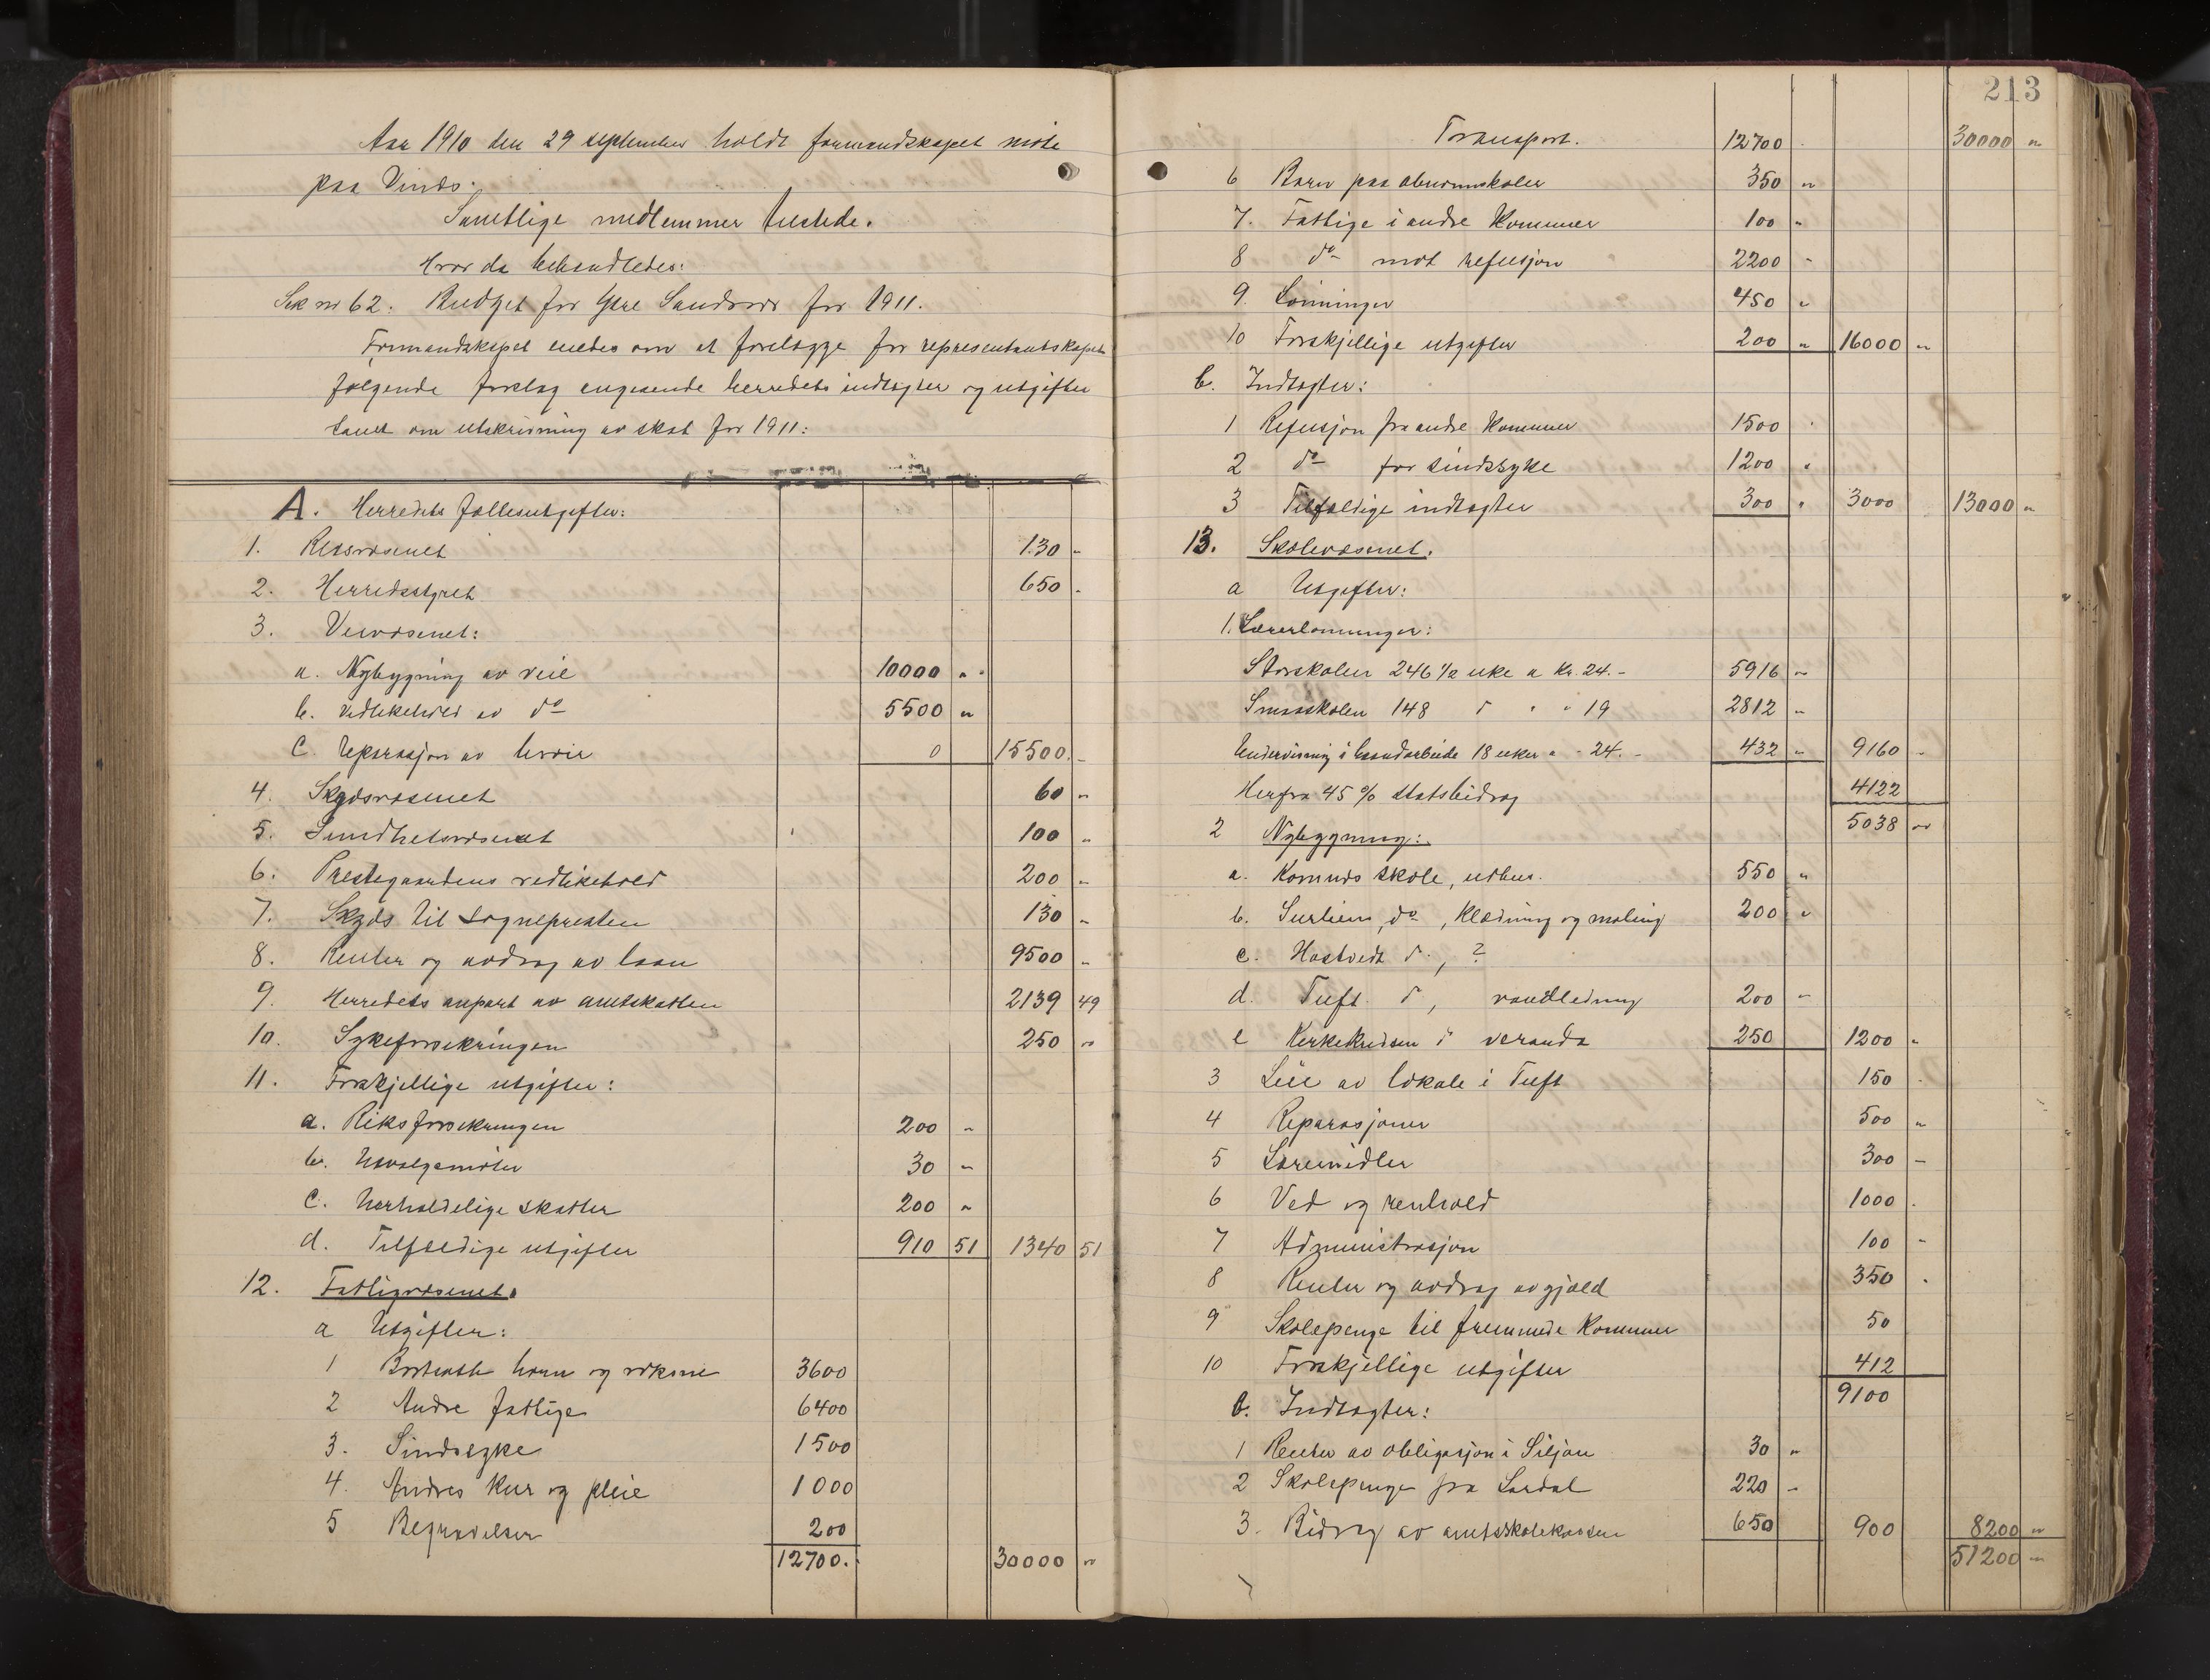 Aar 1910 den 29 september holdt formandskapet møte
paa Vinds.
Samtlige medlemmer tilstede.
Hvor da behandledes:
Sak nr 62. Budget for Ytre Sandsvær for 1911.
Formandskapet enedes om at forelægge for representantskapet
følgende forslag angaaende herredets indtægter og utgifter
samt om utskrivning av skat for 1911:
A. Herredets fællesutgifter:
1. Retsvæsenet 130 "
2. Herredsstyret 650 "
3. Veivæsenet:
a. Nybygning av veie 10000 "
b. Vedlikehold av do 5500 "
c. Reparasjon av broer 0 15500 "
4. Skydsvæsenet 60 "
5. Sundhetsvæsenet 100 "
6. Prestegaardens vedlikehold 200 "
7. Skyds til sognepresten 130 "
8. Renter og avdrag av laan 9500 "
9. Herredets anpart av amtskatten 2139 49
10. Sykeforsekringen 250 "
11. Forskjellige utgifter:
a. Riksforsekringen 200 "
b. Utvalgsmøter 30 "
c. Uerholdelige skatter 200 "
d. Tilfældige utgifter 910 51 1340 51
12. Fattigvæsenet.
a Utgifter:
1 Bortsatte barn og voksne 3600
2 Andre fattige 6400
3. Sindssyke 1500
4. Andres kur og pleie 1000
5 Begravelser 200
12700. 30000 "
213
Transport. 12700 30000 "
6 Barn paa abnormskoler 350 "
7. Fattige i andre kommuner 100 "
8 do mot refusjon 2200 "
9. Lønninger 450 "
10 Forskjellige utgifter 200 " 16000 "
b. Indtægter:
1 Refusjon fra andre kommuner 1500 "
2 do for sindssyke 1200 "
3 Tilfældige indtægter 300 " 3000 13000 "
13. Skolevæsenet.
a Utgifter:
1. Lærerlønninger:
Storskolen 246 1/2 uke a kr. 24.- 5916 "
Smaaskolen 148 d " " 19 2812 "
Undervisning i haandarbeide 18 uker " - 24.- 432 " 9160 "
Herfra 45 % statsbidrag 4122
5038 "
2 Nybygning:
a. Komnes skole, uthus. 550 "
b. Surlien, do, klædning og maling 200 "
c. Hostvedt d., ?
d. Tuft d, vandledning 200 "
e Kirkekredsen d veranda 250 1200 "
3 Leie av lokale i Tuft 150 "
4 Reparasjoner 500 "
5 Læremidler 300 -
6 Ved og renhold 1000 .
7 Administrasjon 100 -
8 Renter og avdrag av gjæld 350 .
9 Skolepenge til fremmede kommuner 50
10 Forskjellige utgifter 412
9100
b. Indtægter:
1 Renter av obligasjon i Siljan 30 "
2 Skolepenge fra Lardal 220 "
3. Bidrag av amtsskolekassen 650 900 8200 "
51200 "